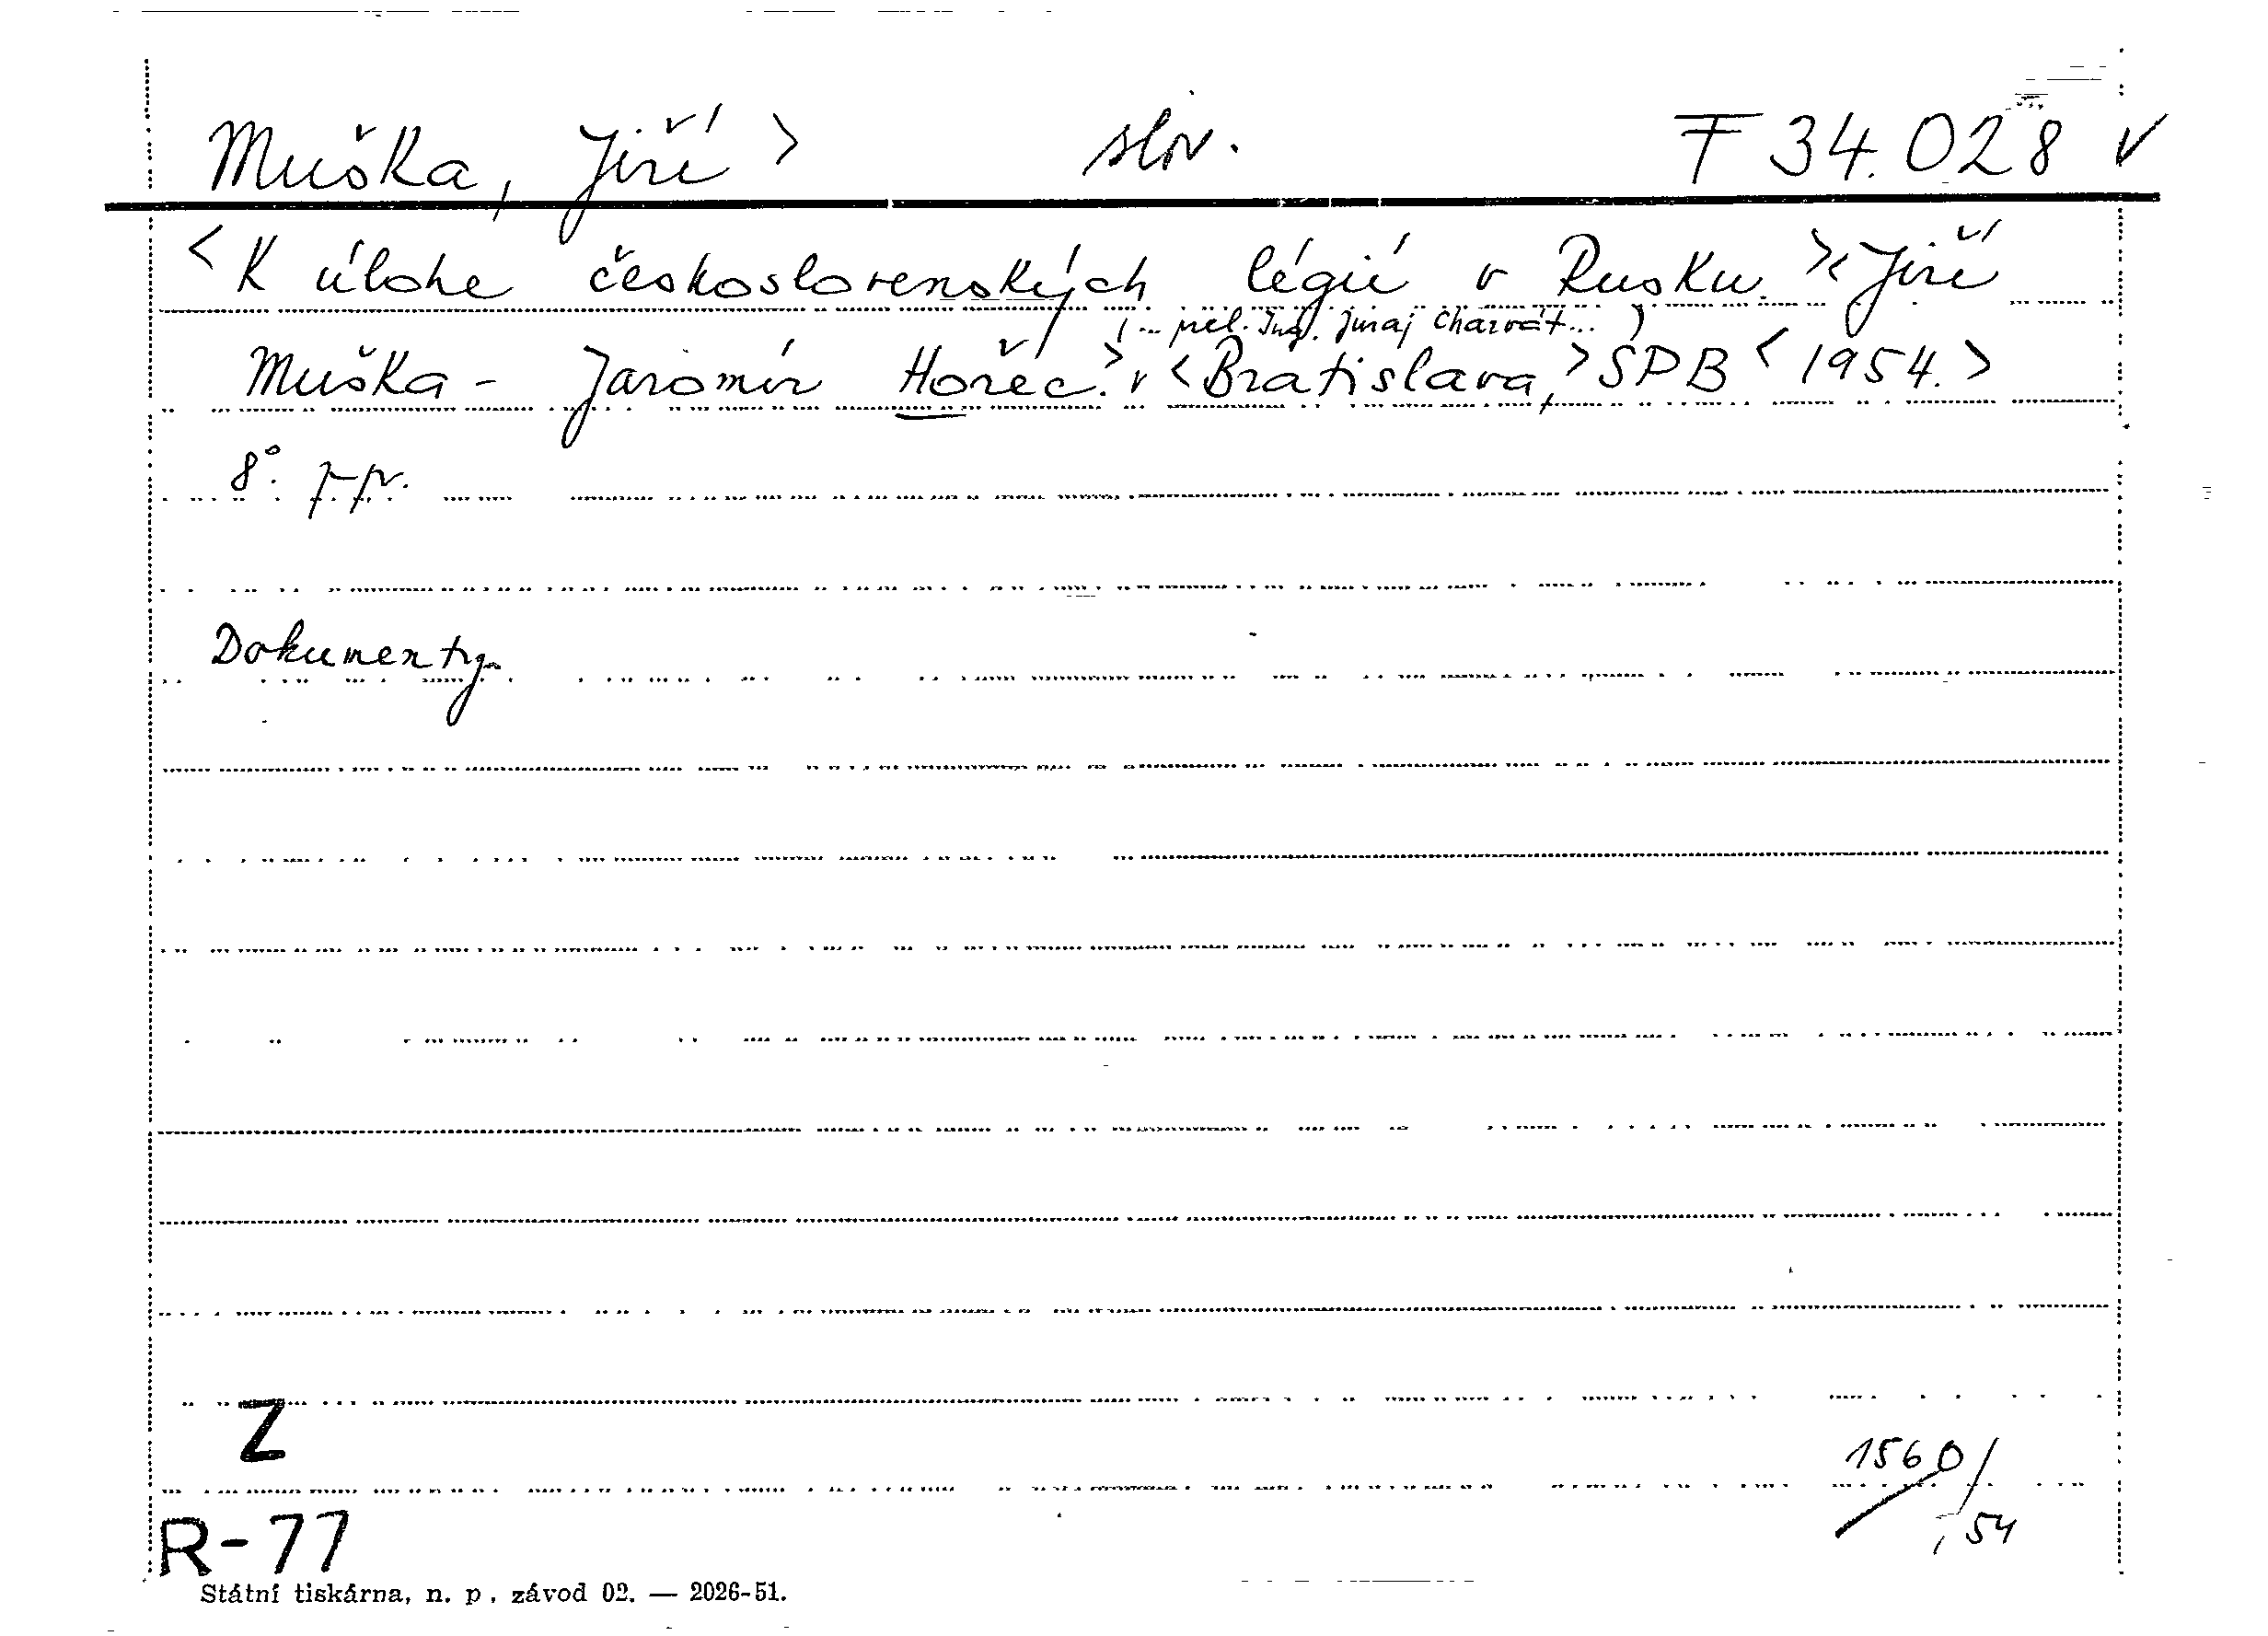 Muška, Jiří > slov. F 34.028 v
<K úlohe československých légií v Rusku.><Jiří
(... prel. Ing. Juraj Charvát...)
Muška - Jaromír Hořec.> v <Bratislava,> SPB <1954.>
8°.
Dokumenty
Z
1560/
54
R-77
Státní tiskárna, n. p., závod 02. — 2026-51.